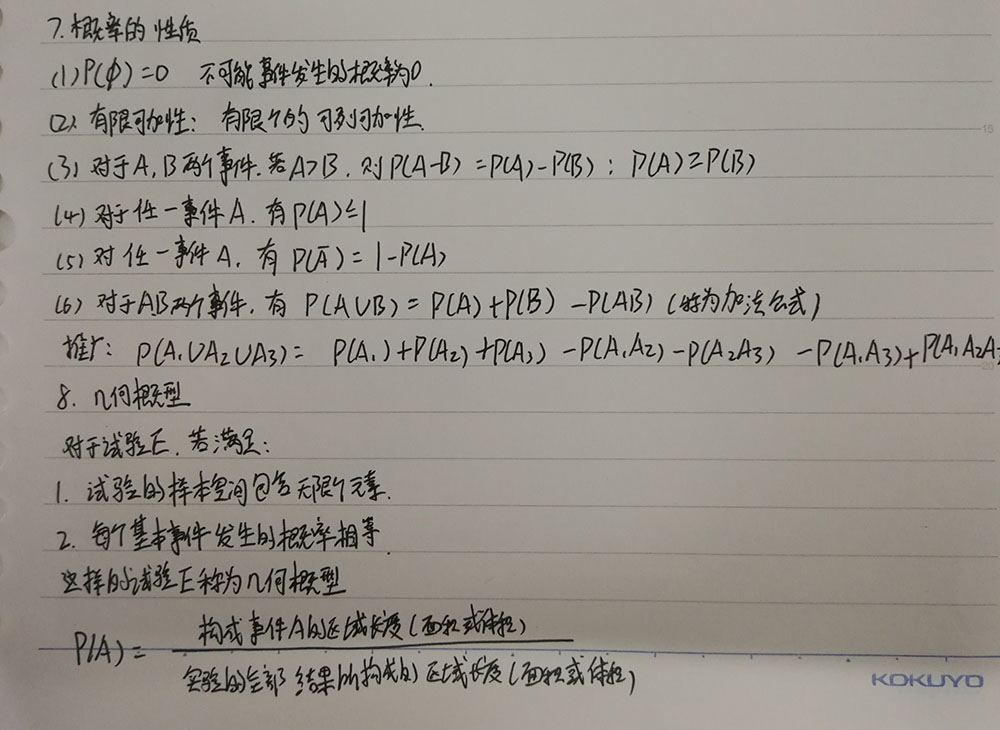 7. 概率的性质
(1) P(∅)=0 不可能事件发生的概率为0.
(2) 有限可加性: 有限个的可列可加性.
(3) 对于A,B两个事件.若A⊃B.则P(A-B)=P(A)-P(B); P(A)≥P(B)
(4) 对于任一事件A.有P(A)≤1
(5) 对任一事件A,有P(A̅)=1-P(A)
(6) 对于AB两个事件,有 P(A∪B)=P(A)+P(B)-P(AB) (称为加法公式)
推广: P(A₁∪A₂∪A₃)= P(A₁)+P(A₂)+P(A₃)-P(A₁A₂)-P(A₂A₃)-P(A₁A₃)+P(A₁A₂A₃
8. 几何概型
对于试验E.若满足:
1. 试验的样本空间包含无限个元素.
2. 每个基本事件发生的概率相等.
这样的试验E称为几何概型
P(A)= 构成事件A的区域长度(面积或体积)
实验的全部结果所构成的区域长度(面积或体积)
KOKUYO